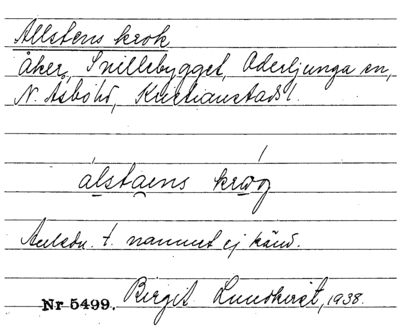 Allstens krok
Åker, Snillebygget, Oderljunga sn,
N. Åsbo hd, Kristianstads l.
álstaens krǫ́g
Anledn. t. namnet ej känd.
Nr 5499. Birgit Lundkvist, 1938.